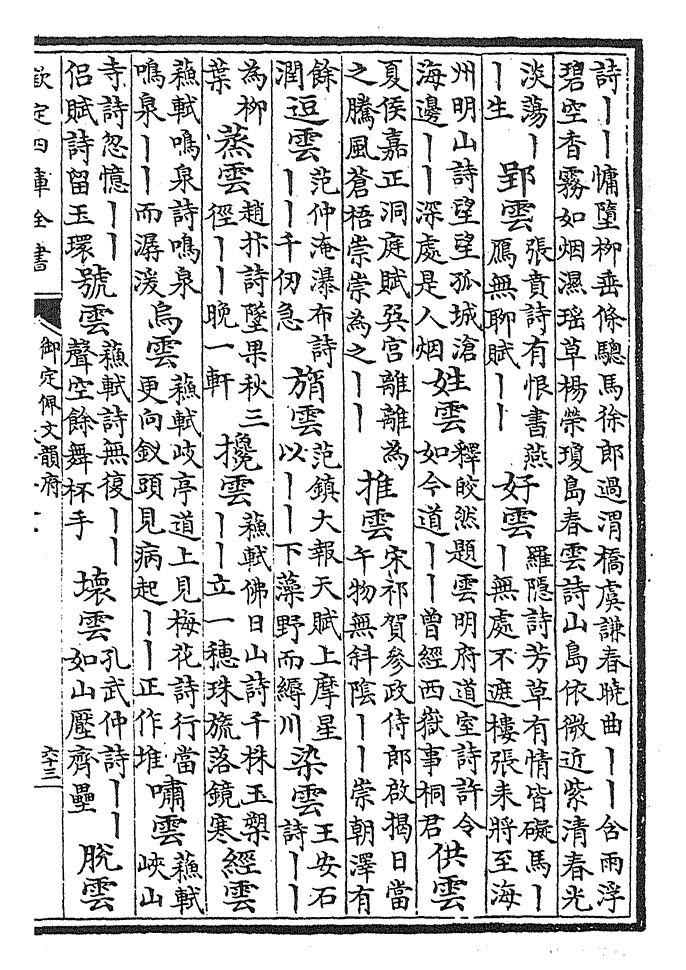 詩｜｜慵墮柳垂條驄馬徐郎過渭橋虞謙春曉曲｜｜含雨浮
碧空香霧如烟濕瑶草楊榮瓊島春雲詩山島依微近紫清春光
淡蕩｜｜生　郢雲　張賁詩有恨書燕鴈無聊賦｜｜　好雲　羅隱詩芳草有情皆礙馬｜｜無處不遮樓張耒將至海
州明山詩望望孤城滄海邊｜｜深處是人烟　姓雲　釋皎然題雲明府道室詩許令如今道｜｜曾經西嶽事桐君　供雲
夏侯嘉正洞庭賦吳宫離離為之騰風蒼梧崇崇為之｜｜　推雲　宋祁賀參政侍郎啟揭日當午物無斜陰｜｜崇朝澤有
餘潤　逗雲　范仲淹瀑布詩｜｜千仞急　旓雲　范鎮大報天賦上摩星以｜｜下藻野而縟川　染雲　王安石詩｜｜
為柳葉　蒸雲　趙抃詩墜果秋三徑｜｜晚一軒　攙雲　蘇軾佛日山詩千株玉槊｜｜立一穗珠旒落鏡寒　經雲
蘇軾鳴泉詩鳴泉鳴泉｜｜而潺湲　烏雲　蘇軾岐亭道上見梅花詩行當更向釵頭見病起｜｜正作堆　嘯雲　蘇軾峽山
寺詩忽憶｜｜侣賦詩留玉環　號雲　蘇軾詩無復｜｜聲空餘舞杯手　壞雲　孔武仲詩｜｜如山壓齊壘　脫雲
欽定四庫全書
御定佩文韻府
六十三